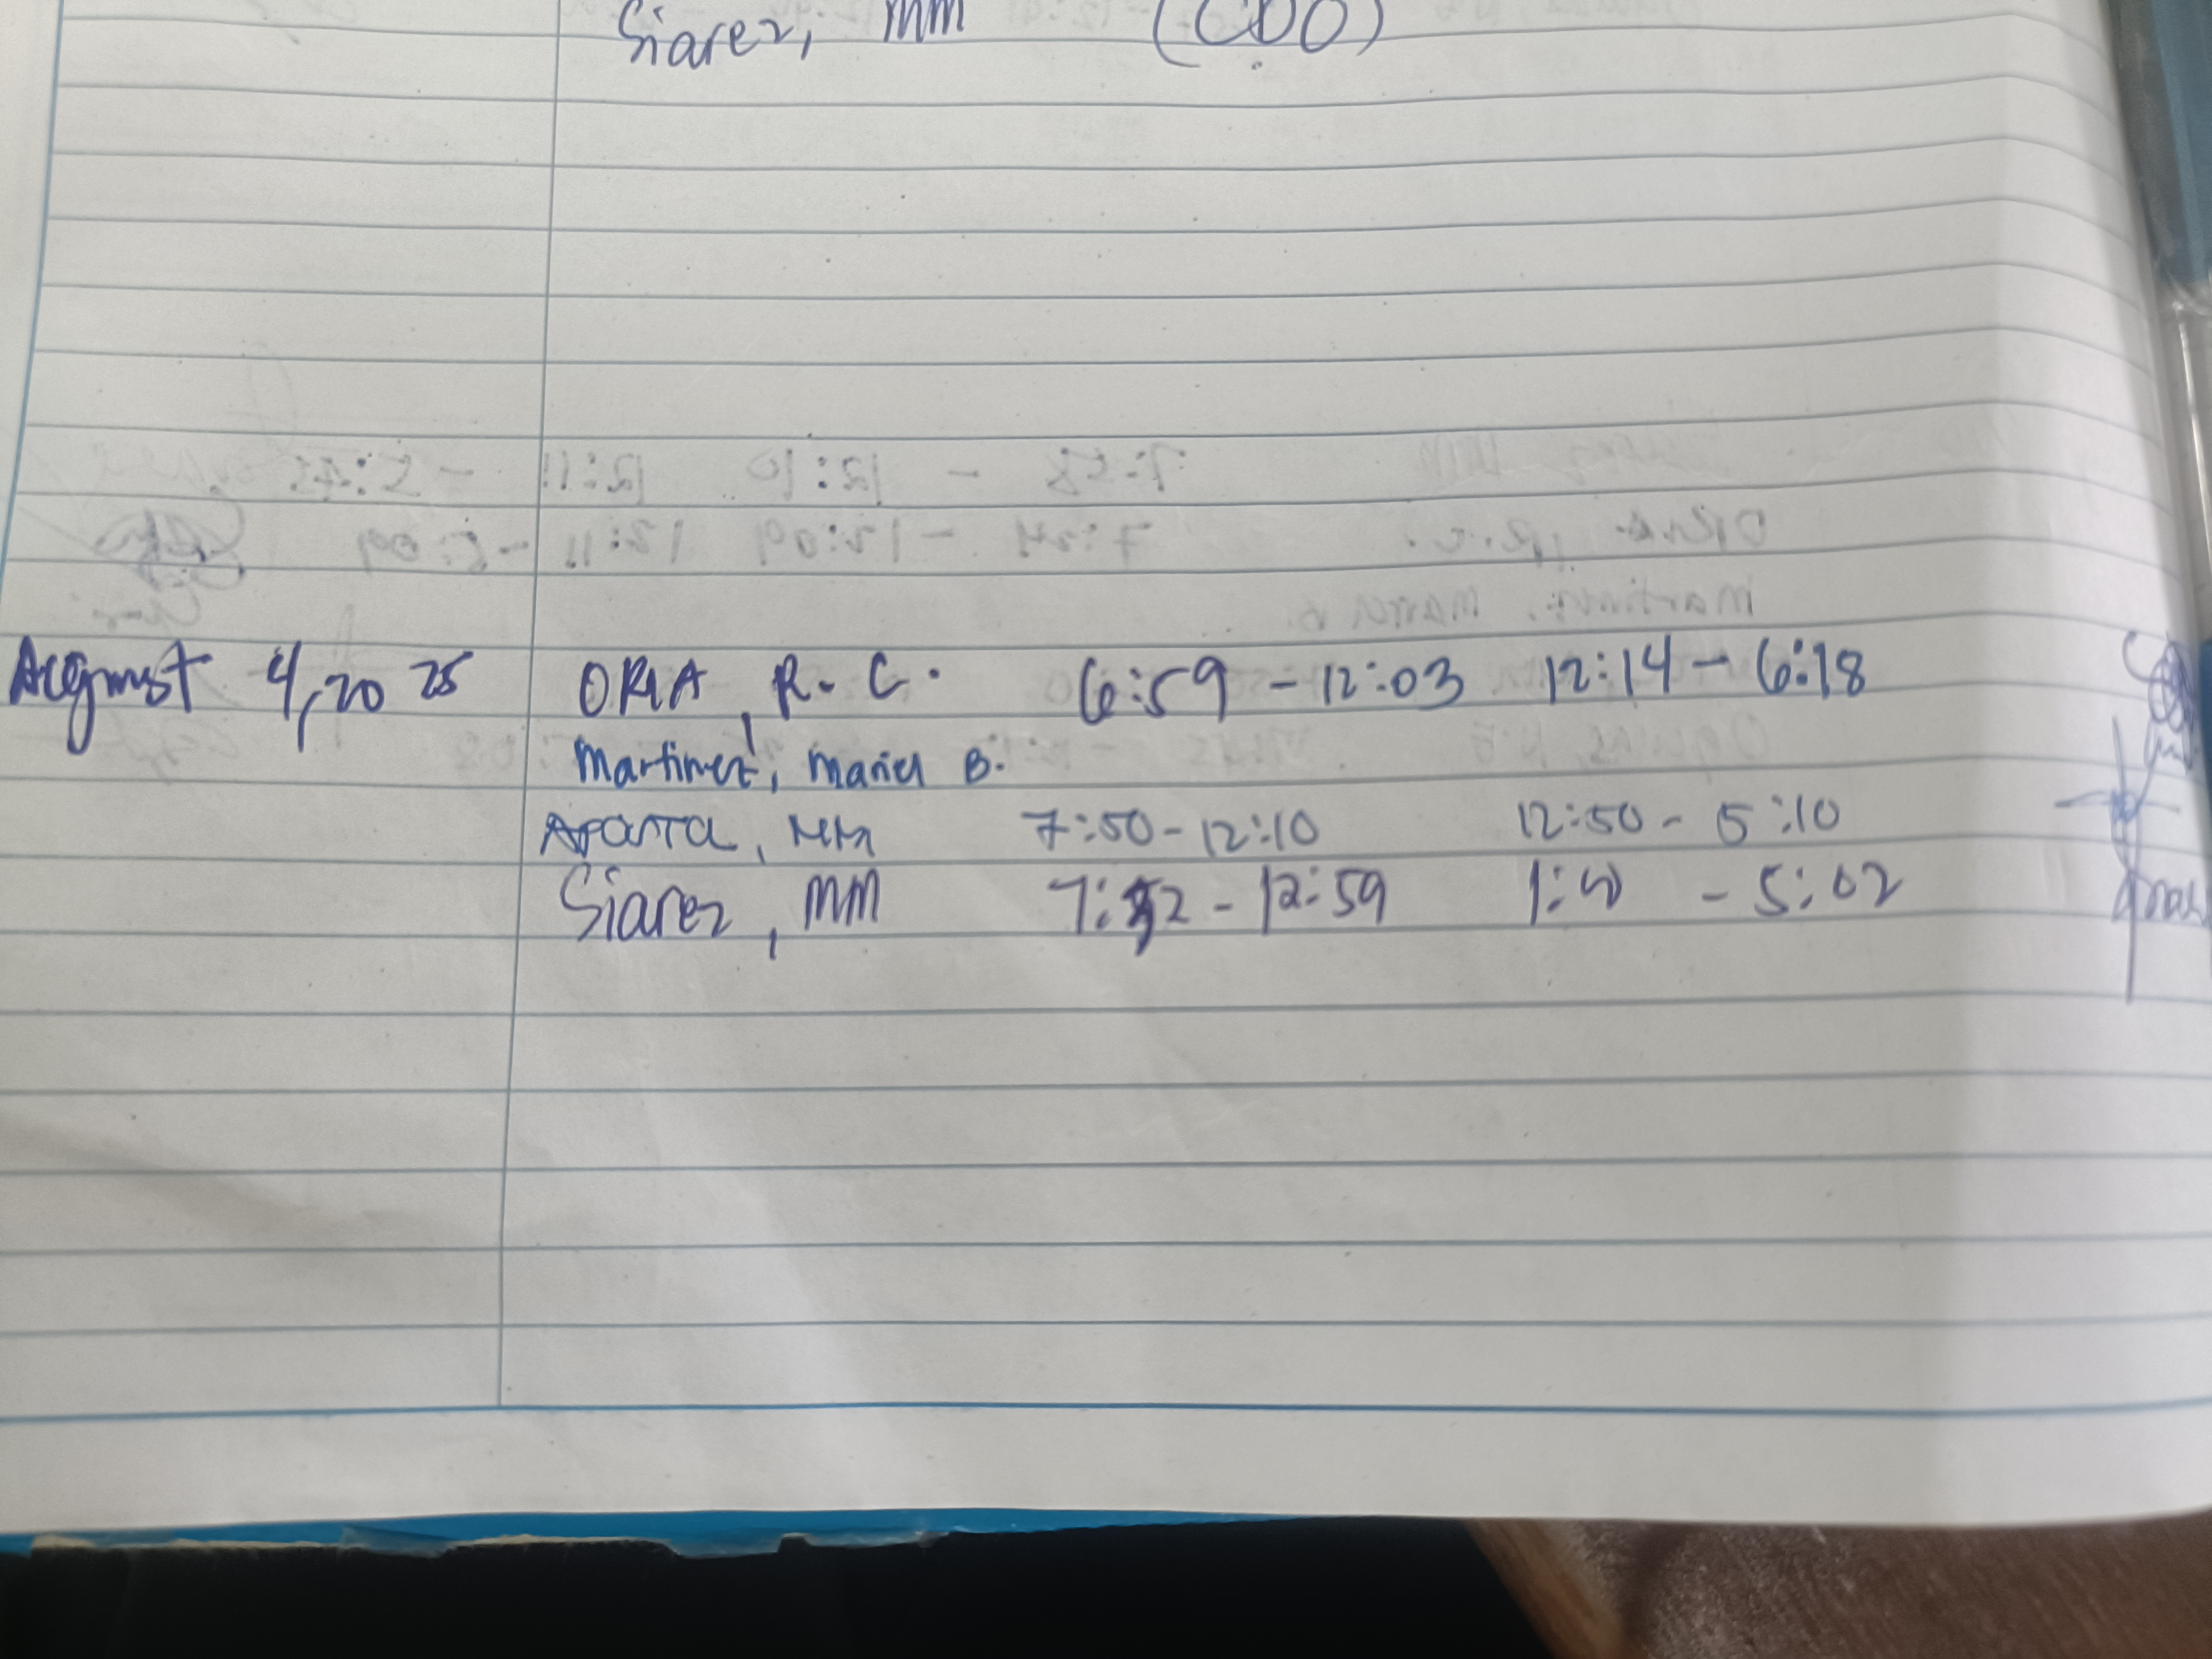 Siarez, MM (CDO)
August 4, 2025 ORIA, R. C. 6:59 - 12:03 12:14 - 6:18
Martinez, Mariel B.
APARTA, MM 7:50 - 12:10 12:50 - 5:10
Siarez, MM 7:52 - 12:59 - 5:02